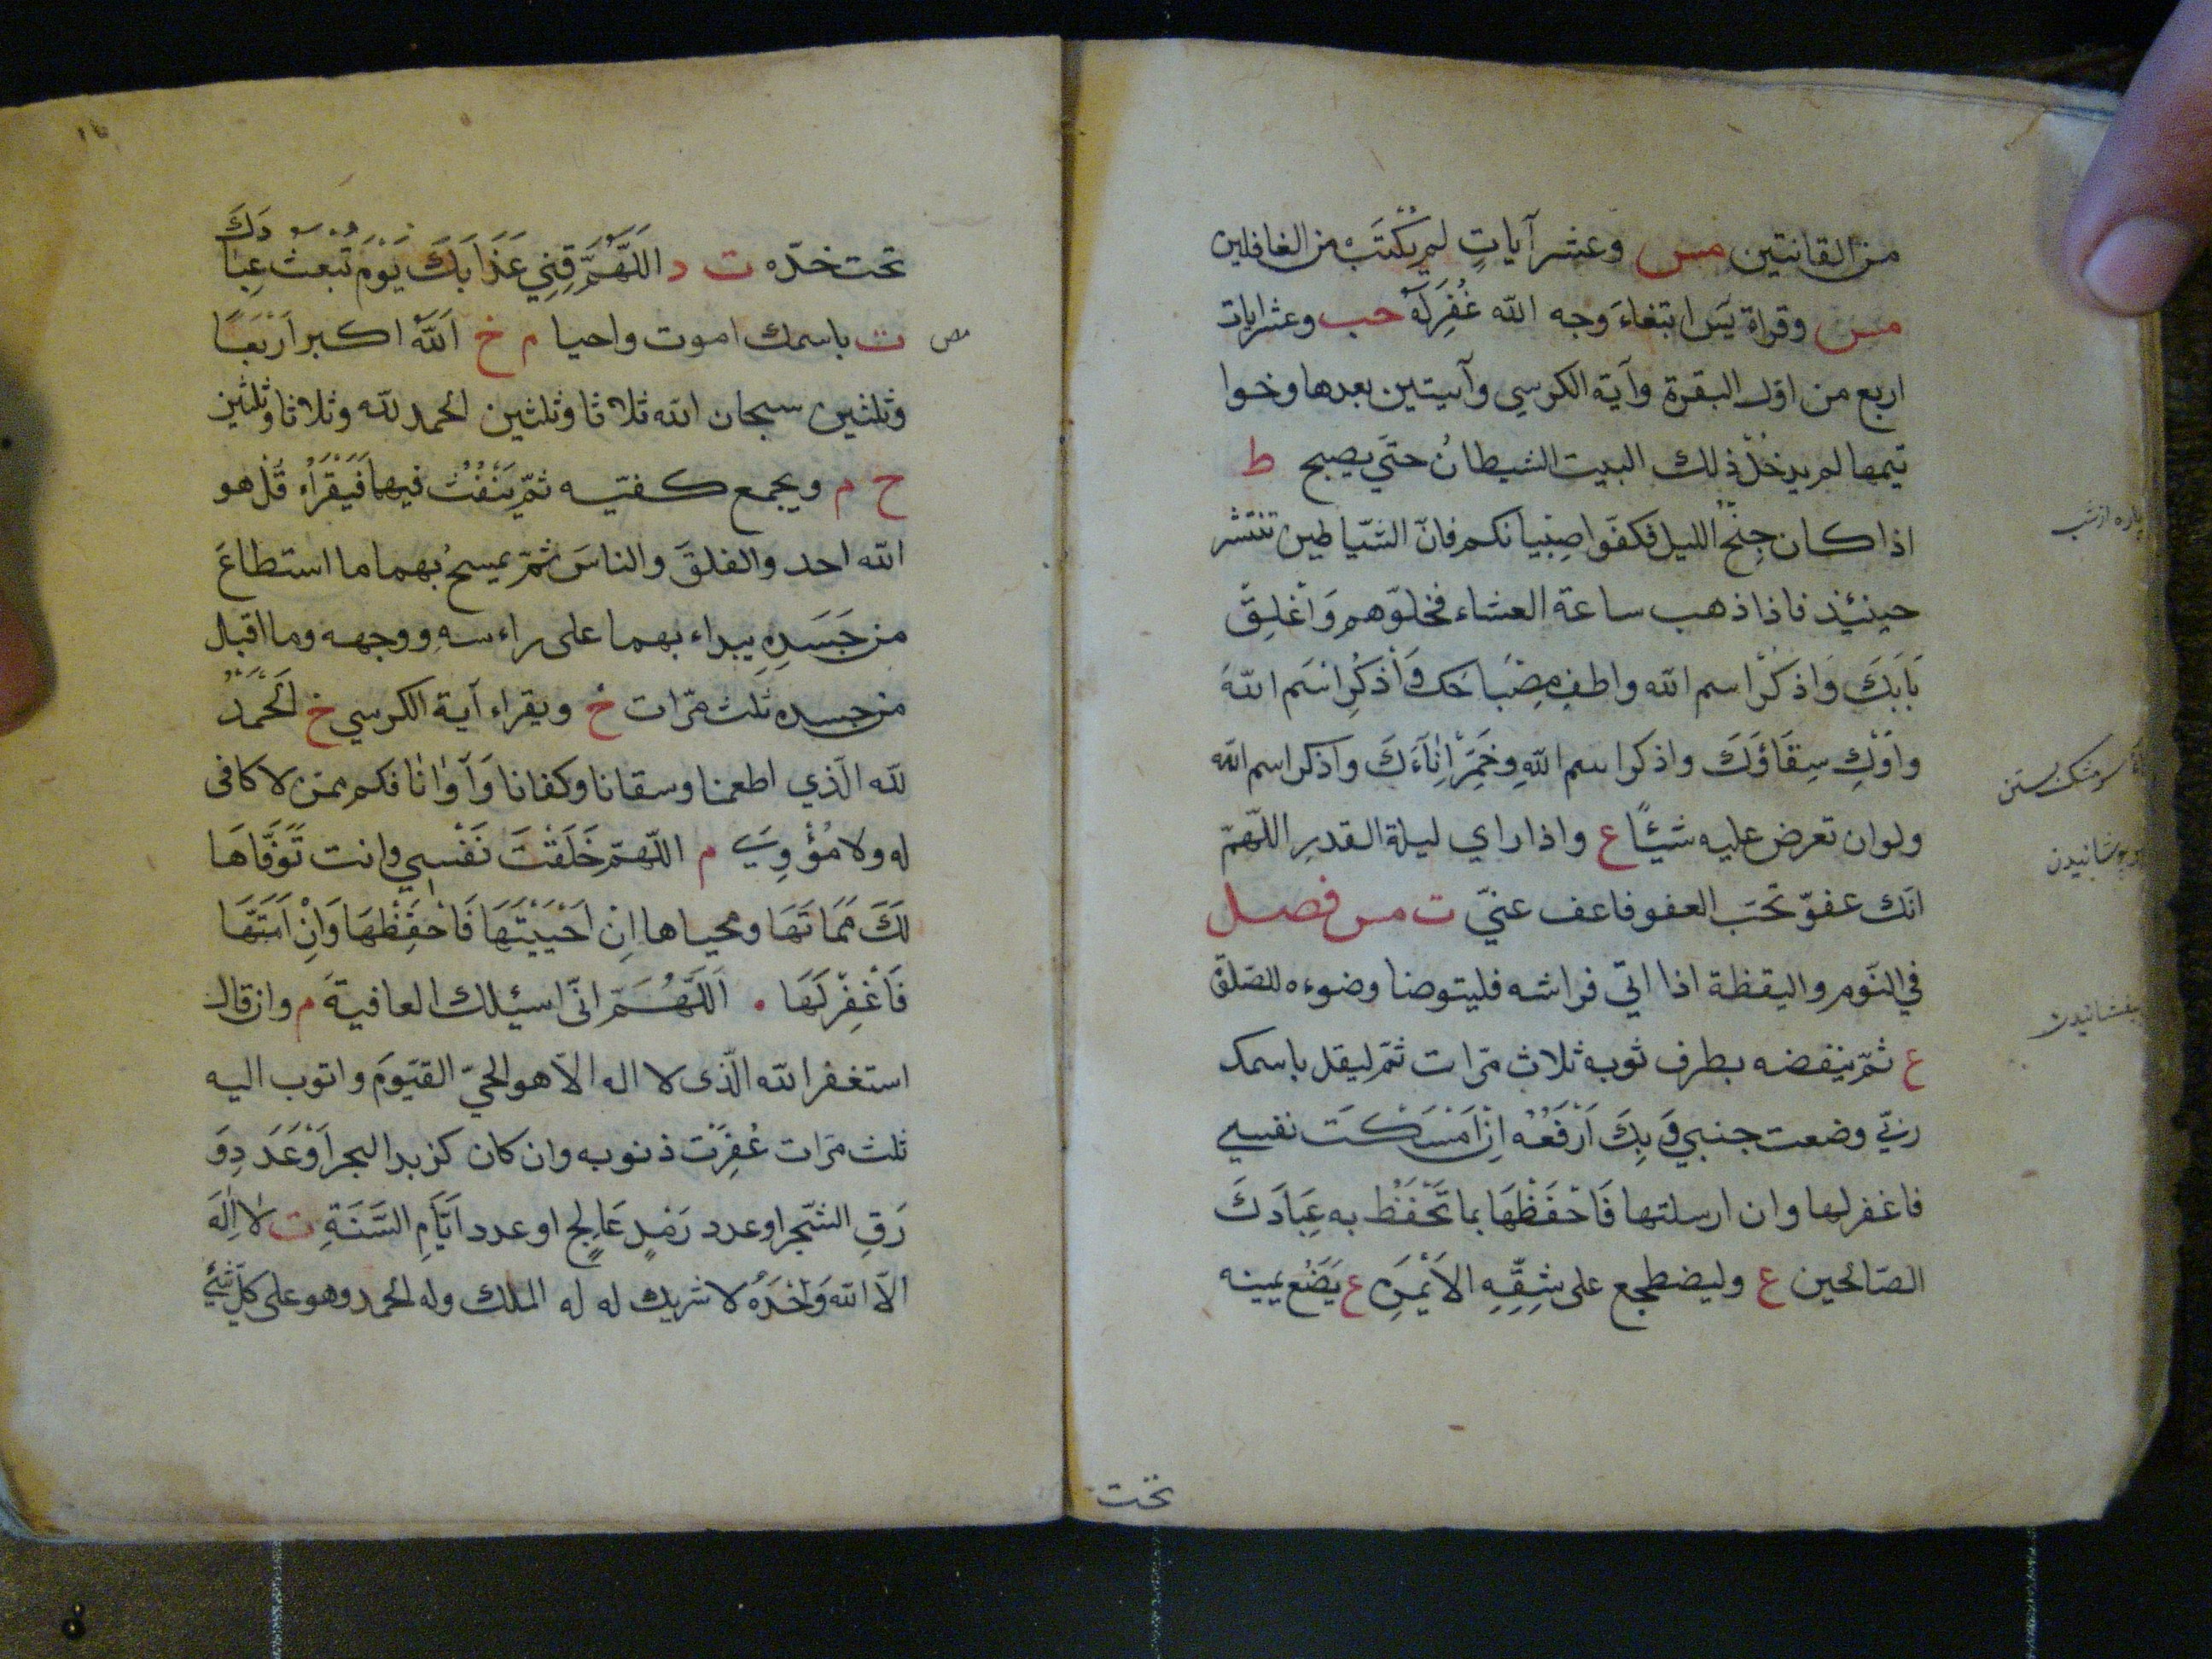 من القانتين مس وعشر آياتٍ لم يُكْتَبْ من الغافلين
مس وقراة يس ابتغاءَ وجه الله غُفِرَ لَهُ حب وعشر ايات
اربع من اوّل البقرة وآية الكرسي وآيتين بعدها وخوا
تيمها لم يدخُلْ ذلك البيت الشيطانُ حتّى يصبح ط
اذا كان جِنْحُ الليل فكفّوا صِبْيانكم فانّ الشّياطين تنتشر
حينئِذٍ فاذا ذهب ساعة العشاء فخلوّهم وَاَغْلِقْ
بَابَكَ وَاذكُرْ اسم الله واطفِ مِصْبَاحَك وَاْذكُرِ اسْمَ اللهَ
واَوْكِ سِقَاؤَكَ واذكر اسم اللهِ وخَمِّرْ اِنٰاۤءَكَ واذكر اسم الله
ولو ان تعرض عليه شيْئًا ع واذا راي ليلة القدرِ اللّهمّ
انّك عفوّ تحبّ العفو فاعف عنّي ت مس فصل
في النّوم واليقظة اذا اتي فراشه فليتوضا وضوءه للصّلوة
ع ثمّ ينفضه بطرف ثوبه ثلاث مّرات ثمّ ليقل باسمك
ربّي وضعت جنبي وَ بِكَ اَرْفَعُه اِنْ اَمْسَكْتَ نفسي
فاغفر لها وان ارسلتها فَاحْفَظْهَا بما تَحْفَظُ به عِبَادَكَ
الصّالحين ع وليضطجع على شِقِّهِ الاَيْمَنِ ع يَضَع يمينه
تحت
پاره از شب
سر مشك بستن
پوشانيدن
بيفشانيدن
تحت خدّه ت د اللّهُمَّ قِنِي عَذَابَكَ يَوْمَ تُبْعَثُ عِبَا
دَكَ
ت باسمك اموت واحيا م خ اَللّهُ اكبر اَرْبَعًا
وثلثين سبحان الله ثلاثا وثلثين الحمد لله وثلاثا وثلثين
خ م ويجمع كفيّه ثمّ يَنْفُثُ فيهما فَيَقْرَأُ قُلْ هو
الله احد والفلقَ والناسَ ثمّ يمسحُ بهما ما استطاعَ
من جَسَدِهِ يبداء بهما على راءسهِ ووجهه وما اقبال
من جسده ثلث مّرات خ ويقراء آية الكرسي خ اَلْحَمْدُ
لله الّذي اطعمنا وسقانا وكفانا وَآوٰانٰا فكم ممّن لا كافى
له ولا مُؤْوِيَ م اللّهمّ خَلَقْتَ نَفْسِي وانت تَوَفّاهَا
لَكَ مَمَاتَهَا ومحياها اِنْ اَحْيَيْتَهَا فَاحْفَظْهَا وَاِنْ اَمَتَّهَا
فَاغْفِرْ لَهَا . اَللّهُمَّ انّى اسئلك العافيةَ م وان قال
استغفر الله الّذى لا اله الاّ هو الحيّ القيّومَ واتوب اليه
ثلث مّرات غُفِرَتْ ذنوبه وان كان كزبد البحر اَوْ عَدَدِ وَ
رَقِ الشّجر او عدد رَمْلِ عَالِجٍ او عدد اَيَّامِ السَّنَةِ ت لا اِلٰهَ
الاّ الله وَحْدَهُ لا شريك له له الملك وله الحمد وهو على كلّ شئ
مص